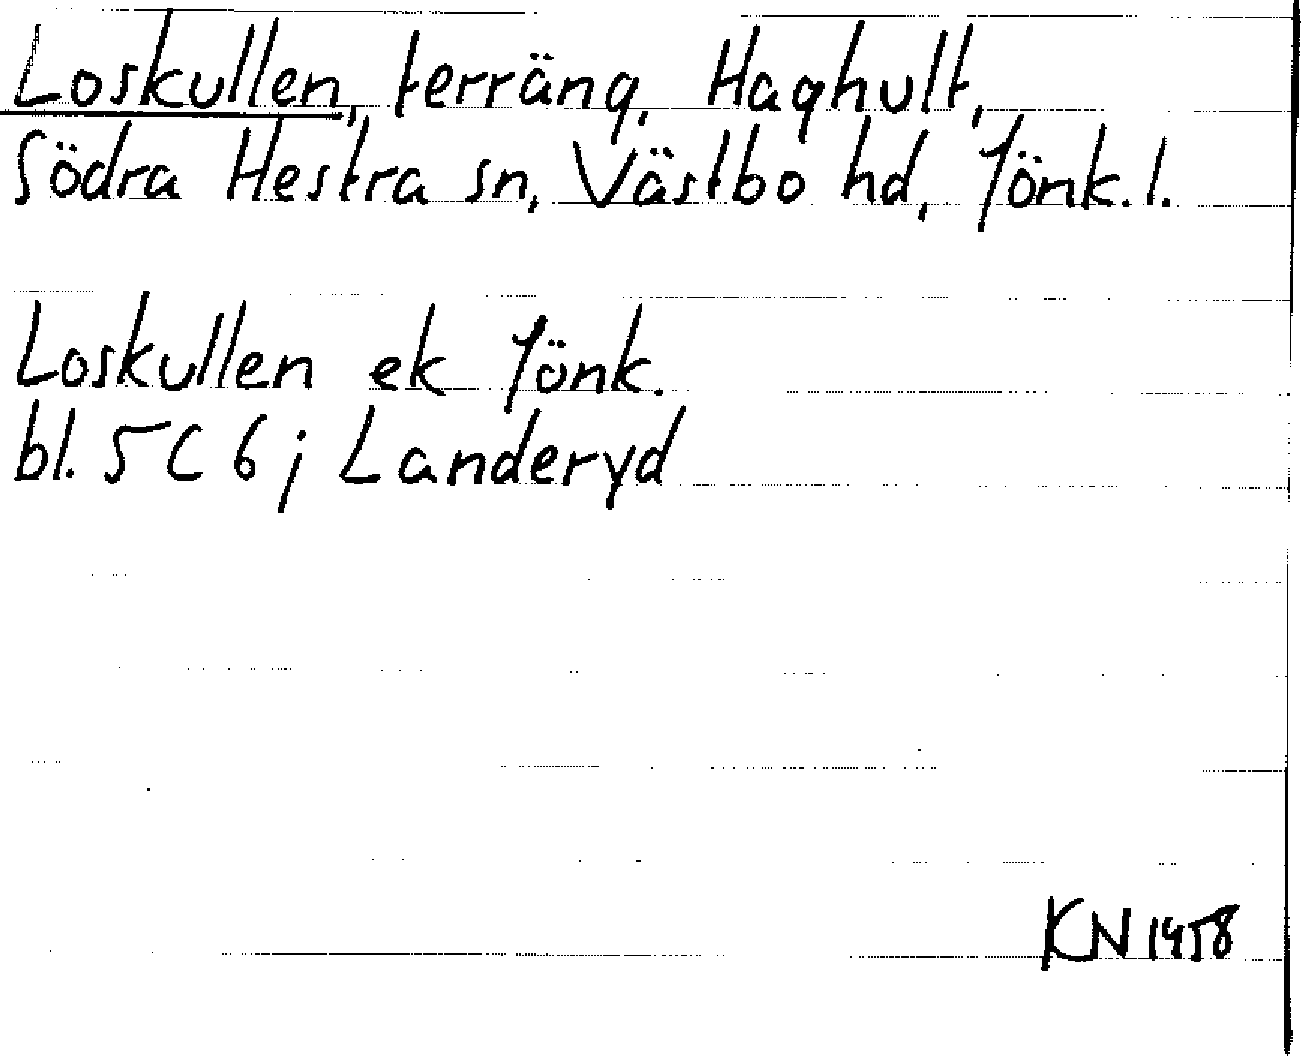 Loskullen, terräng, Haghult,
Södra Hestra sn, Västbo hd, Jönk. l.
Loskullen ek Jönk.
bl. 5C 6j Landeryd
KN 1958